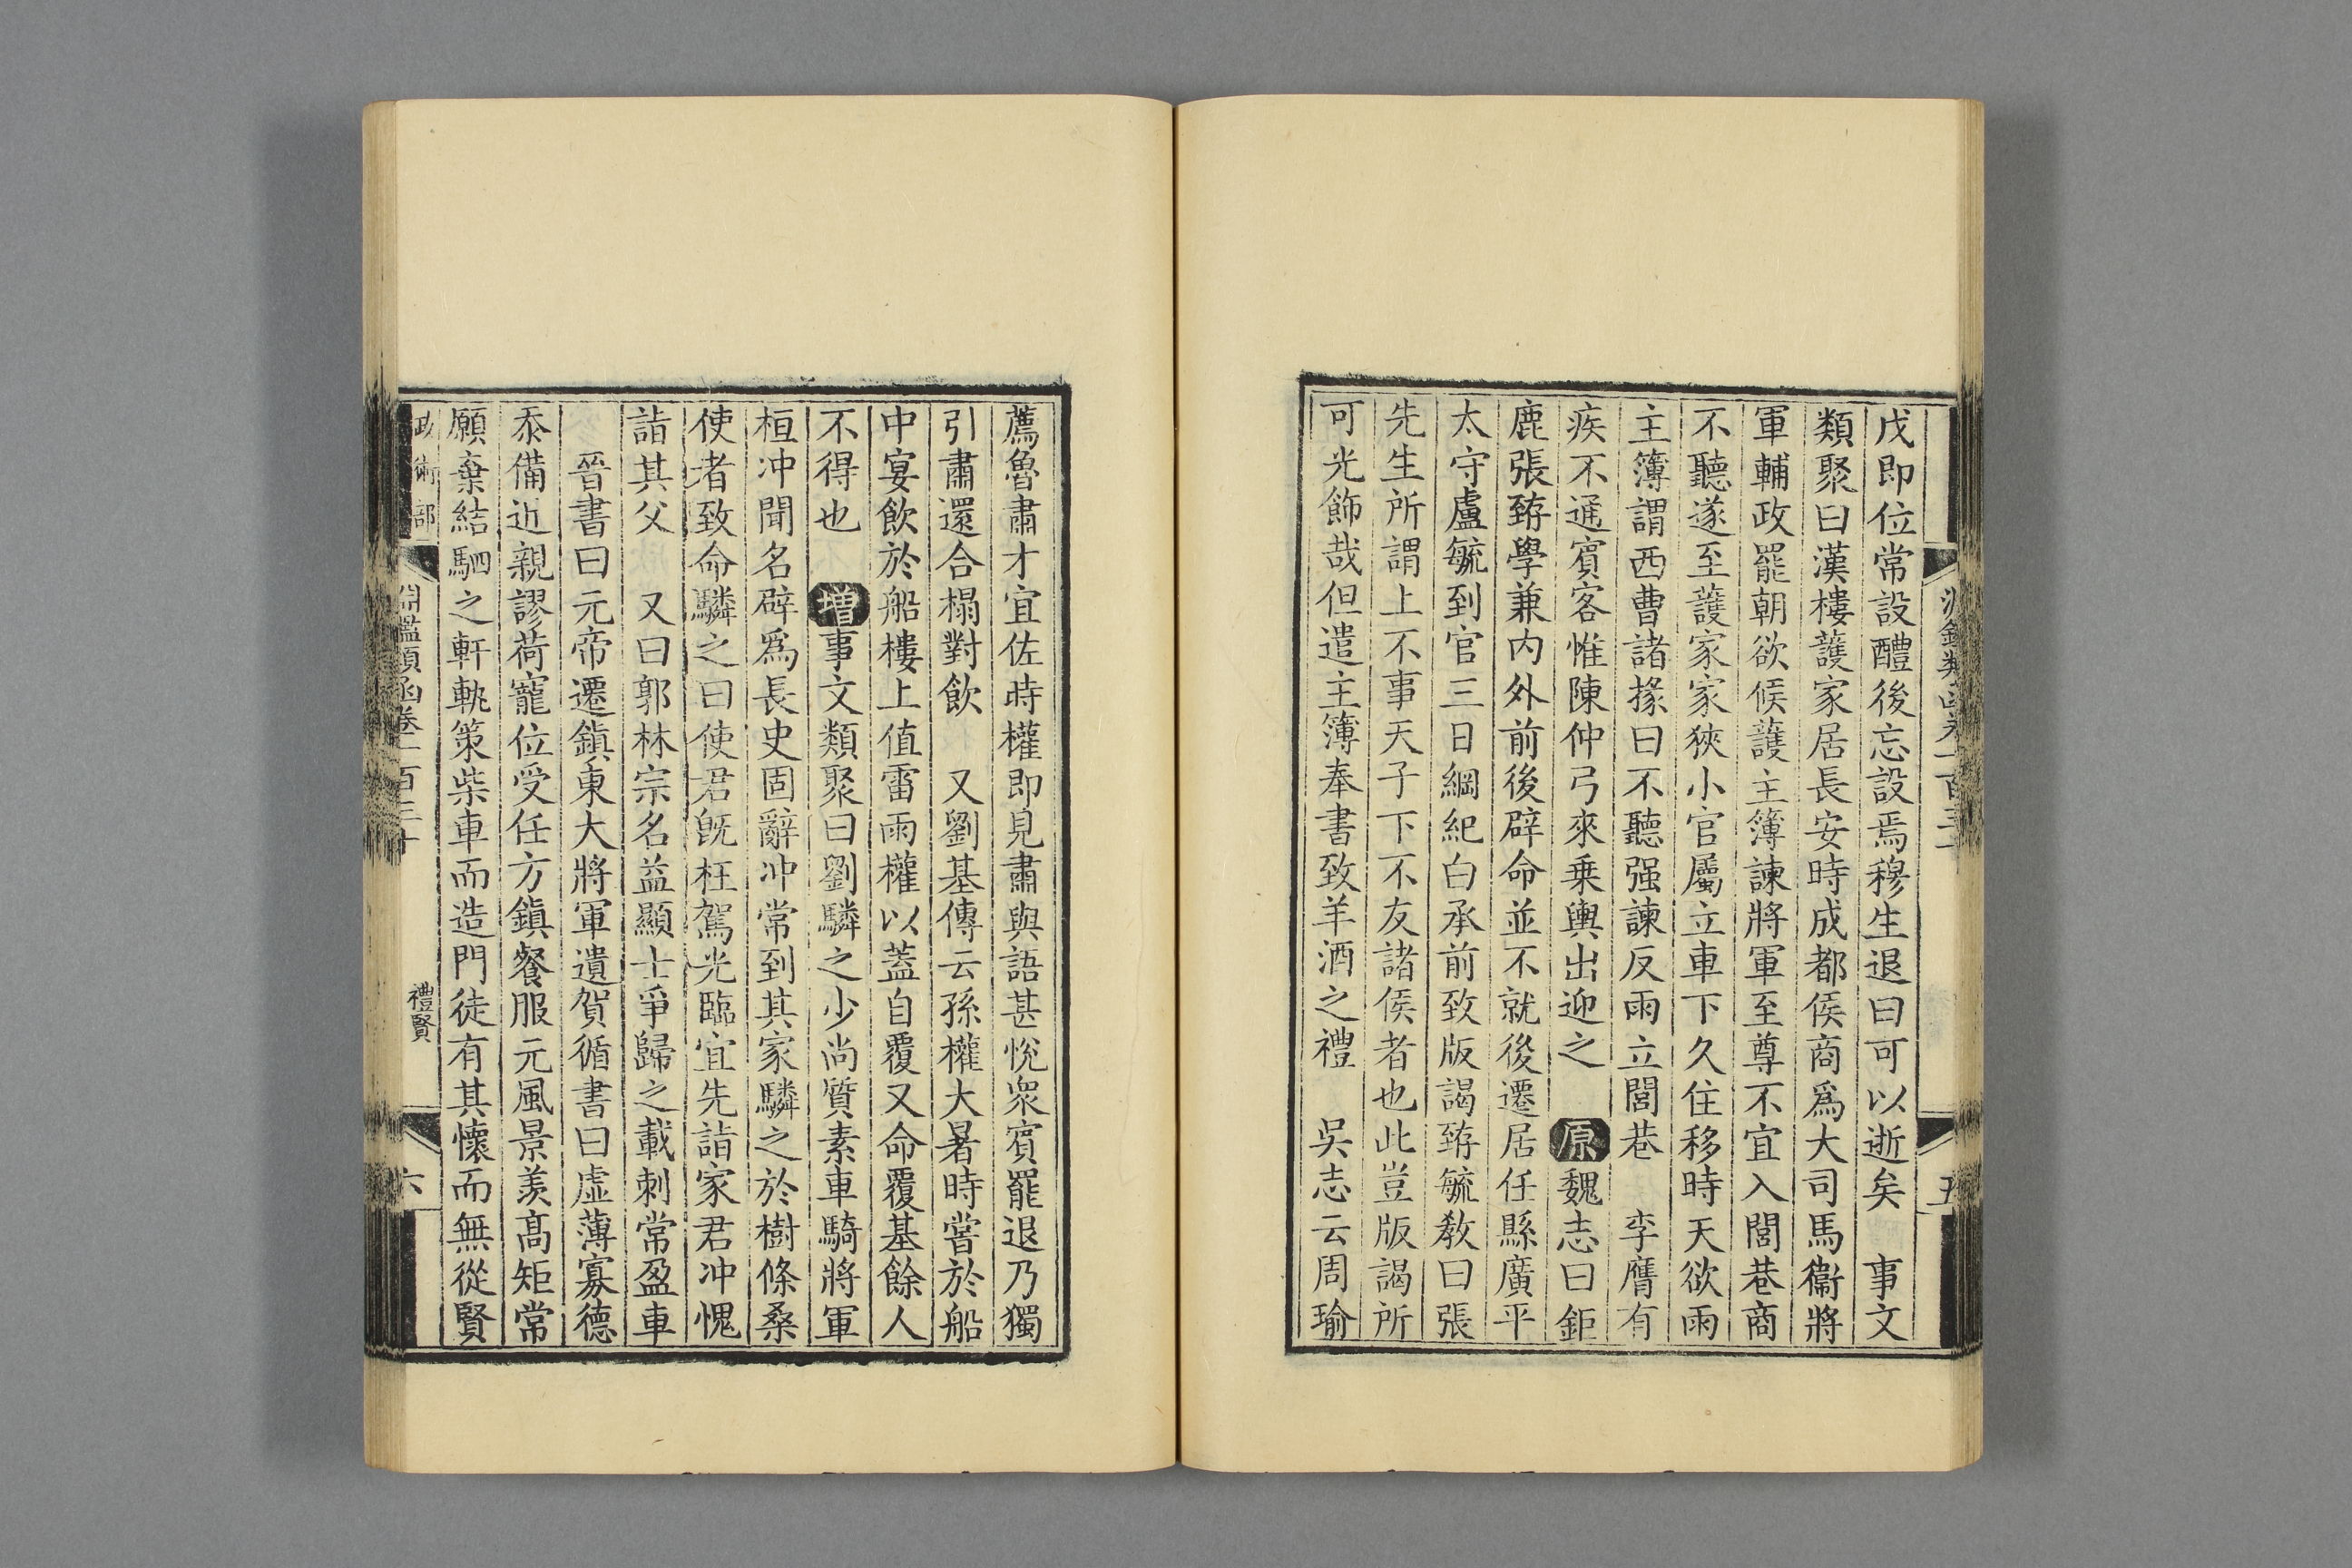 戊即位常設醴後忘設焉穆生退曰可以逝矣　事文
類聚曰漢樓護家居長安時成都侯商爲大司馬衞將
軍輔政罷朝欲候護主簿諫將軍至尊不宜入閭巷商
不聽遂至護家家狹小官屬立車下久住移時天欲雨
主簿謂西曹諸掾曰不聽强諫反雨立閭巷　李膺有
疾不通賓客惟陳仲弓來乗輿出迎之　原魏志曰鉅
鹿張臶學兼内外前後辟命並不就後遷居任縣廣平
太守盧毓到官三日綱紀白承前致版謁臶毓敎曰張
先生所謂上不事天子下不友諸侯者也此豈版謁所
可光飾哉但遣主簿奉書致羊酒之禮　吳志云周瑜
五
薦魯肅才宜佐時權即見肅與語甚悅衆賓罷退乃獨
引肅還合榻對飮　又劉基傳云孫權大暑時嘗於船
中宴飮於船樓上值雷雨權以蓋自覆又命覆基餘人
不得也　增事文類聚曰劉驎之少尚質素車騎將軍
桓冲聞名辟爲長史固辭冲常到其家驎之於樹條桑
使者致命驎之曰使君旣枉駕光臨宜先詣家君冲愧
詣其父　又曰郭林宗名益顯士爭歸之載刺常盈車
晉書曰元帝遷鎭東大將軍遺賀循書曰虛薄寡德
忝備近親謬荷寵位受任方鎭餐服元風景羨高矩常
願棄結駟之軒軌策柴車而造門徒有其懷而無從賢
政術部
淵鑑類函卷一百三十
禮賢
六